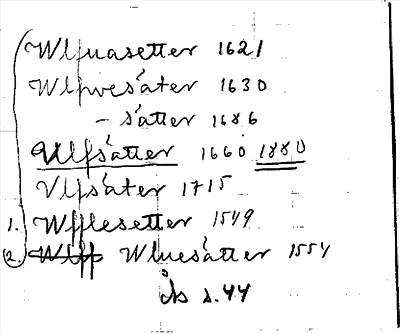 Wlfuasetter 1621
Wlfvesäter 1630
- sätter 1686
Ulfsätter 1660 1880
Vlfsäter 1715
1. Wfflesetter 1549
2. Wlff Wluesätter 1554
ib s. 44